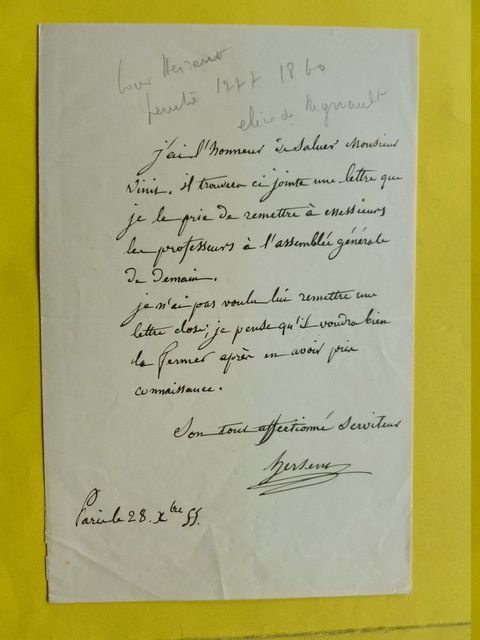 Louis Hersent
peintre 1777 1860
élève de Regnault
j'ai l'honneur de saluer Monsieur
Vinit. il trouvera ci jointe une lettre que
je le prie de remettre à messieurs
les professeurs à l'assemblée générale
de demain.
je n'ai pas voulu lui remettre une
lettre close; je pense qu'il voudra bien
la fermer après en avoir pris
connaissance.
Son tout affectionné serviteur
hersent
Paris le 28. Xbre 55.